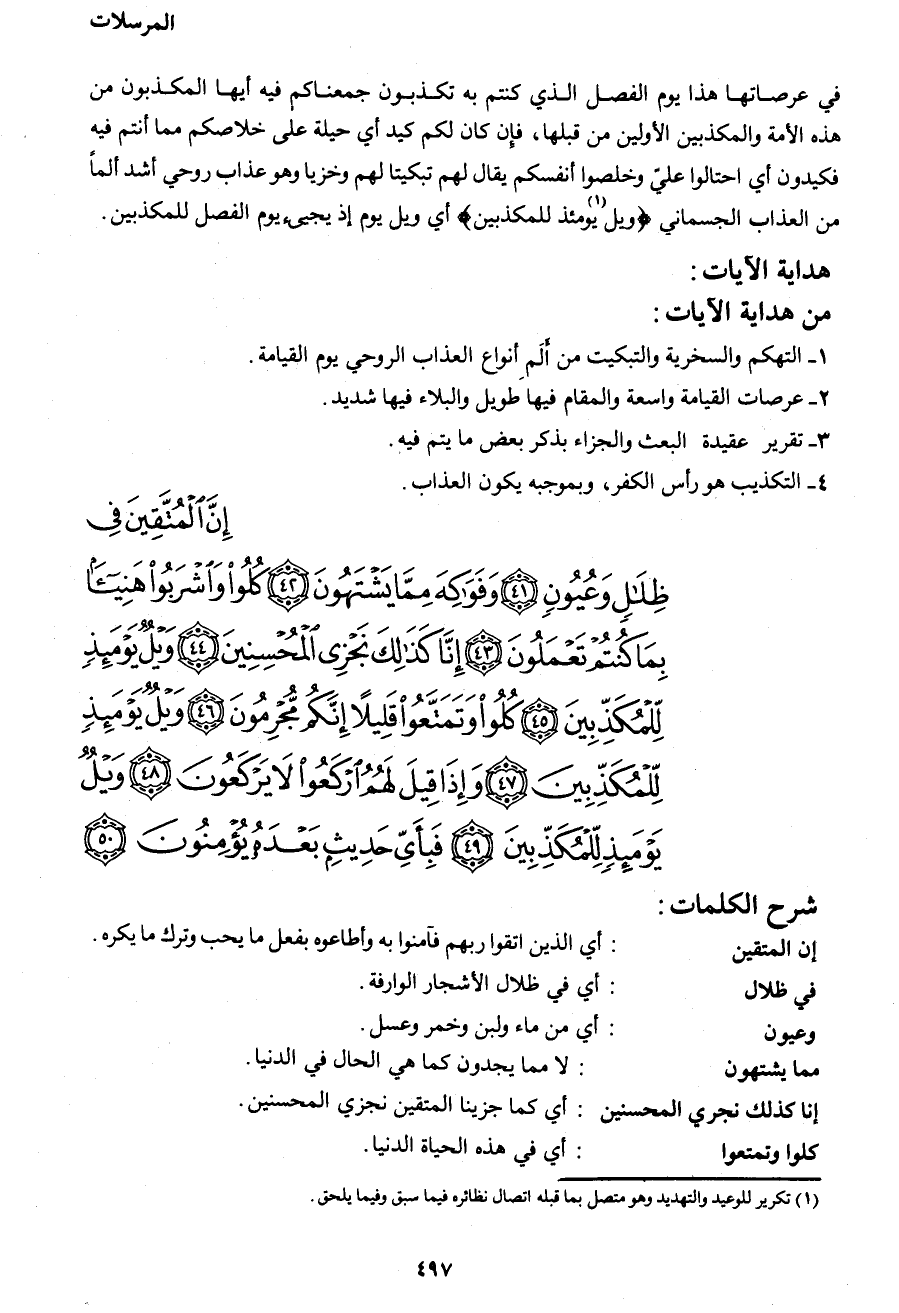 المرسلات
في عرصاتها هذا يوم الفصل الذي كنتم به تكذبون جمعناكم فيه أيها المكذبون من
هذه الأمة والمكذبين الأولين من قبلها، فإن كان لكم كيد أي حيلة على خلاصكم مما أنتم فيه
فكيدون أي احتالوا عليّ وخلصوا أنفسكم يقال لهم تبكيتا لهم وخزيا وهو عذاب روحي أشد ألماً
من العذاب الجسماني ﴿ويل(١) يومئذ للمكذبين﴾ أي ويل يوم إذ يجيىء يوم الفصل للمكذبين.
هداية الآيات:
من هداية الآيات:
١ـ التهكم والسخرية والتبكيت من أَلَمِ أنواع العذاب الروحي يوم القيامة.
٢ـ عرصات القيامة واسعة والمقام فيها طويل والبلاء فيها شديد.
٣ـ تقرير عقيدة البعث والجزاء بذكر بعض ما يتم فيه.
٤ـ التكذيب هو رأس الكفر، وبموجبه يكون العذاب.
إِنَّ ٱلْمُتَّقِينَ فِى
ظِلَٰلٍ وَعُيُونٍ ٤١ وَفَوَٰكِهَ مِمَّا يَشْتَهُونَ ٤٢ كُلُوا۟ وَٱشْرَبُوا۟ هَنِيٓـًٔۢا
بِمَا كُنتُمْ تَعْمَلُونَ ٤٣ إِنَّا كَذَٰلِكَ نَجْزِى ٱلْمُحْسِنِينَ ٤٤ وَيْلٌ يَوْمَئِذٍ
لِّلْمُكَذِّبِينَ ٤٥ كُلُوا۟ وَتَمَتَّعُوا۟ قَلِيلًا إِنَّكُم مُّجْرِمُونَ ٤٦ وَيْلٌ يَوْمَئِذٍ
لِّلْمُكَذِّبِينَ ٤٧ وَإِذَا قِيلَ لَهُمُ ٱرْكَعُوا۟ لَا يَرْكَعُونَ ٤٨ وَيْلٌ
يَوْمَئِذٍ لِّلْمُكَذِّبِينَ ٤٩ فَبِأَىِّ حَدِيثٍۭ بَعْدَهُۥ يُؤْمِنُونَ ٥٠
شرح الكلمات:
إن المتقين : أي الذين اتقوا ربهم فآمنوا به وأطاعوه بفعل ما يحب وترك ما يكره.
في ظلال : أي في ظلال الأشجار الوارفة.
وعيون : أي من ماء ولبن وخمر وعسل.
مما يشتهون : لا مما يجدون كما هي الحال في الدنيا.
إنا كذلك نجري المحسنين : أي كما جزينا المتقين نجزي المحسنين.
كلوا وتمتعوا : أي في هذه الحياة الدنيا.
(١) تكرير للوعيد والتهديد وهو متصل بما قبله اتصال نظائره فيما سبق وفيما يلحق.
٤٩٧